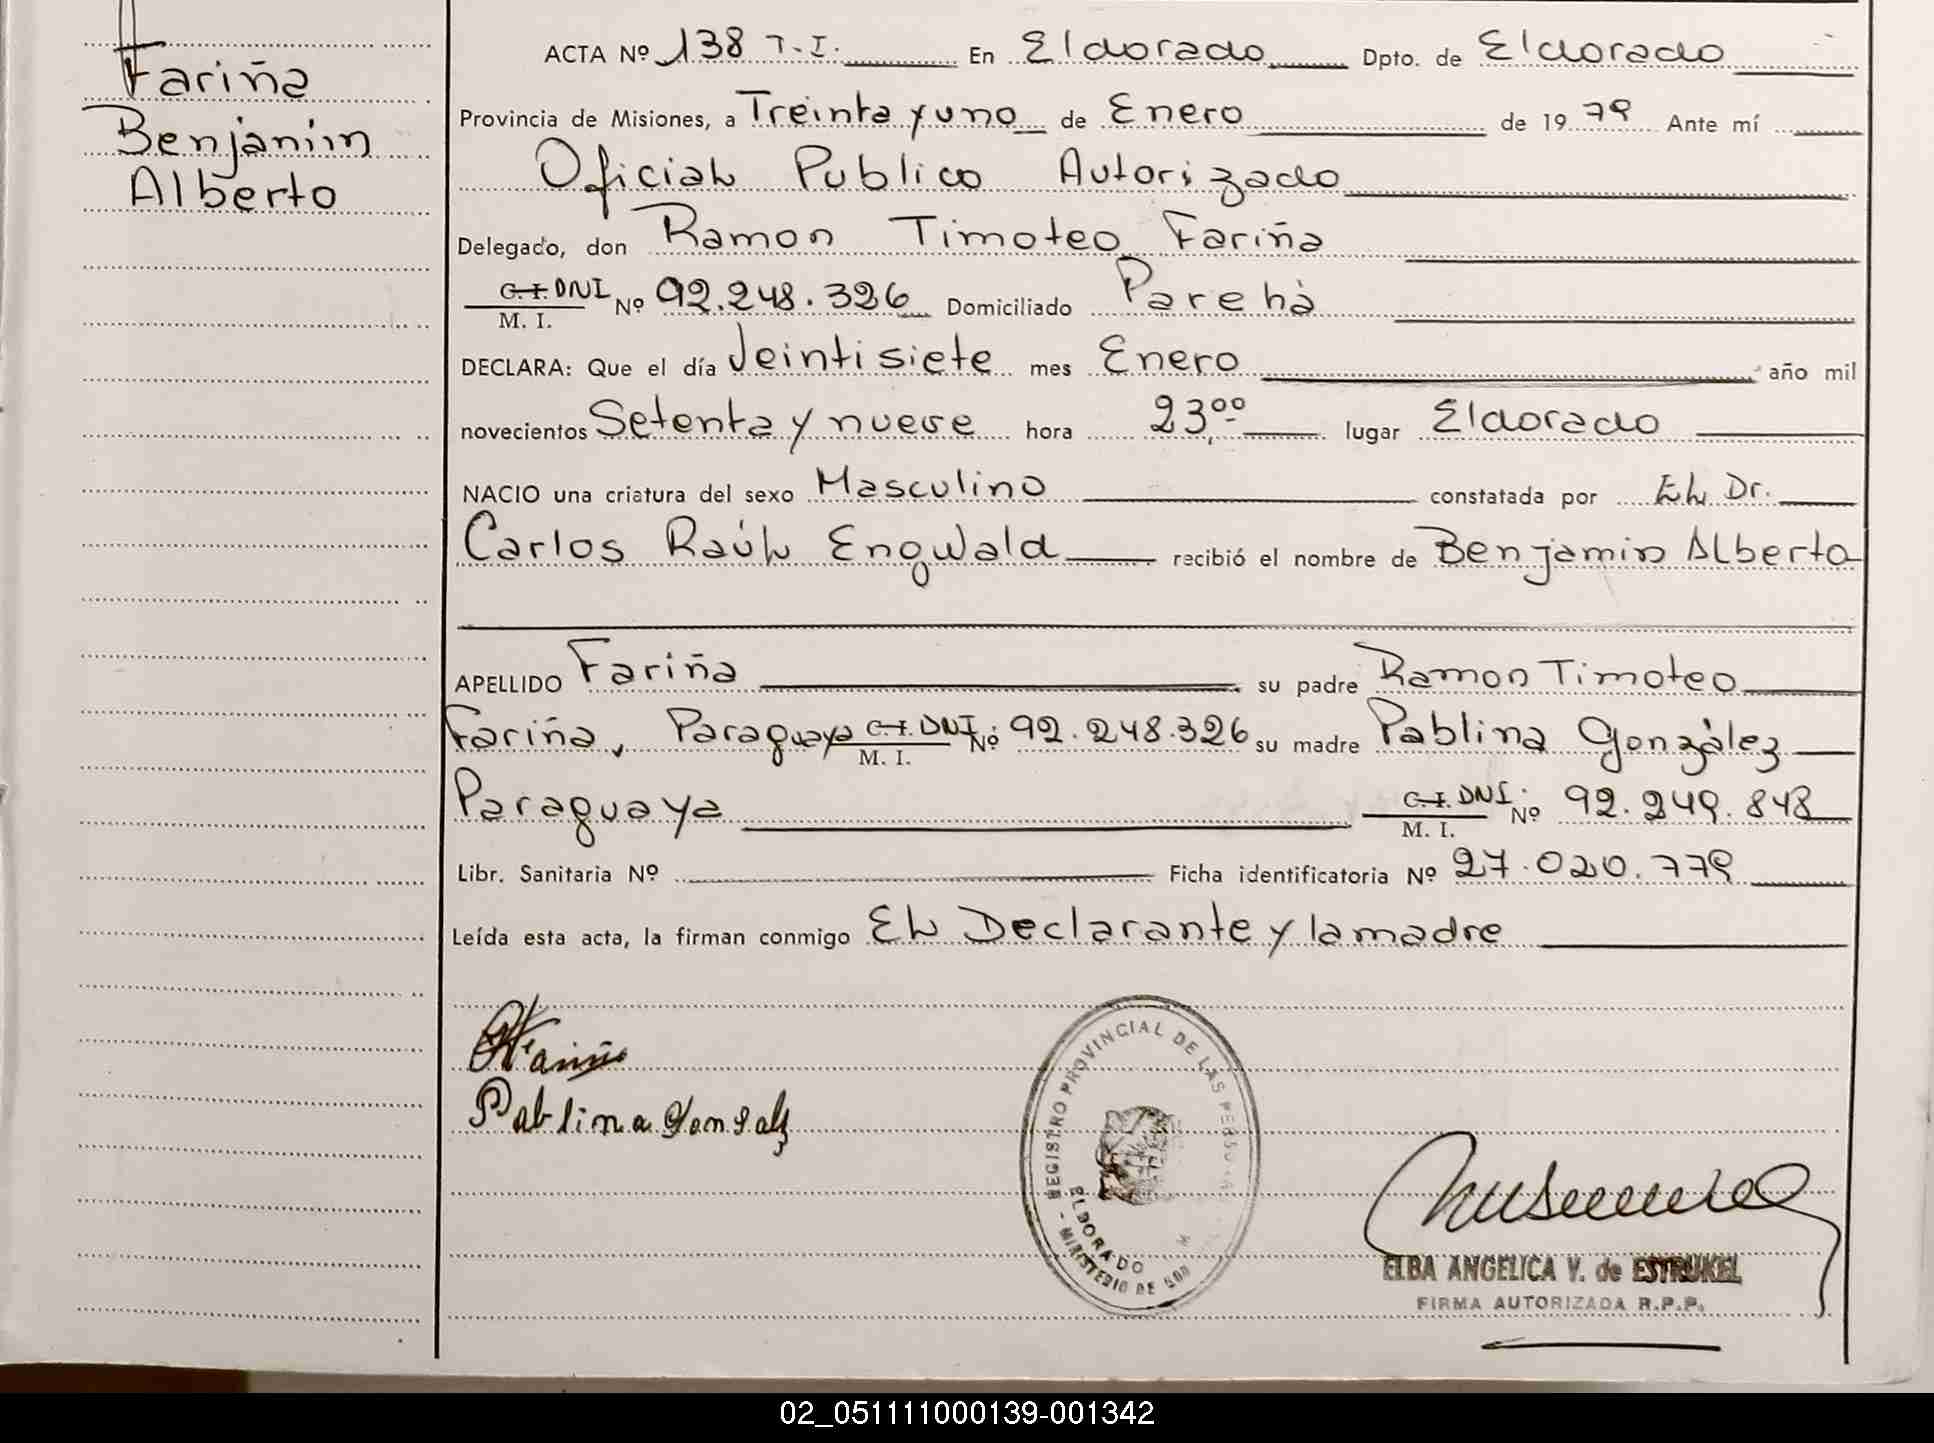 Fariña
Benjamin
Alberto
ACTA Nº 138 T.I. En Eldorado Dpto. de Eldorado
Provincia de Misiones, a Treinta y uno de Enero de 1979 Ante mí
Oficial Publico Autorizado
Delegado, don Ramon Timoteo Fariña
C.I. DNI M. I. Nº 92.248.326 Domiciliado Parehà
DECLARA: Que el día Veintisiete mes Enero año mil
novecientos Setenta y nueve hora 23,00 lugar Eldorado
NACIO una criatura del sexo Masculino constatada por El Dr.
Carlos Raúl Engwald recibió el nombre de Benjamin Alberto
APELLIDO Fariña su padre Ramon Timoteo
Fariña, Paraguaya C.I. DNI M. I. Nº 92.248.326 su madre Pablina Gonzàlez
Paraguaya C.I. DNI M. I. Nº 92.249.848
Libr. Sanitaria Nº Ficha identificatoria Nº 27.020.779
Leída esta acta, la firman conmigo El Declarante y la madre
Fariña
Pablina Gonsalz
REGISTRO PROVINCIAL DE LAS
ELDORADO
- MINISTERIO DE
ELBA ANGELICA V. de ESTRUKEL
FIRMA AUTORIZADA R.P.P.
02_051111000139-001342